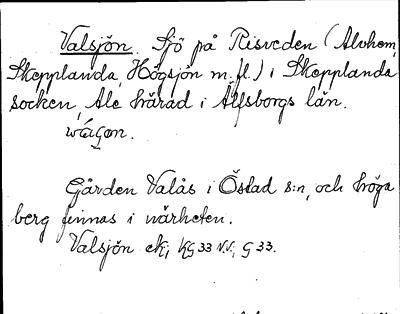 Valsjön. Sjö på Risveden (Alvhem,
Skepplanda, Högsjön m.fl.) i Skepplanda
socken, Ale härad i Älfsborgs län.
Gården Valås i Östad s:n, och höga
berg finnas i närheten.
Valsjön ek, KG 33 NV; G 33.